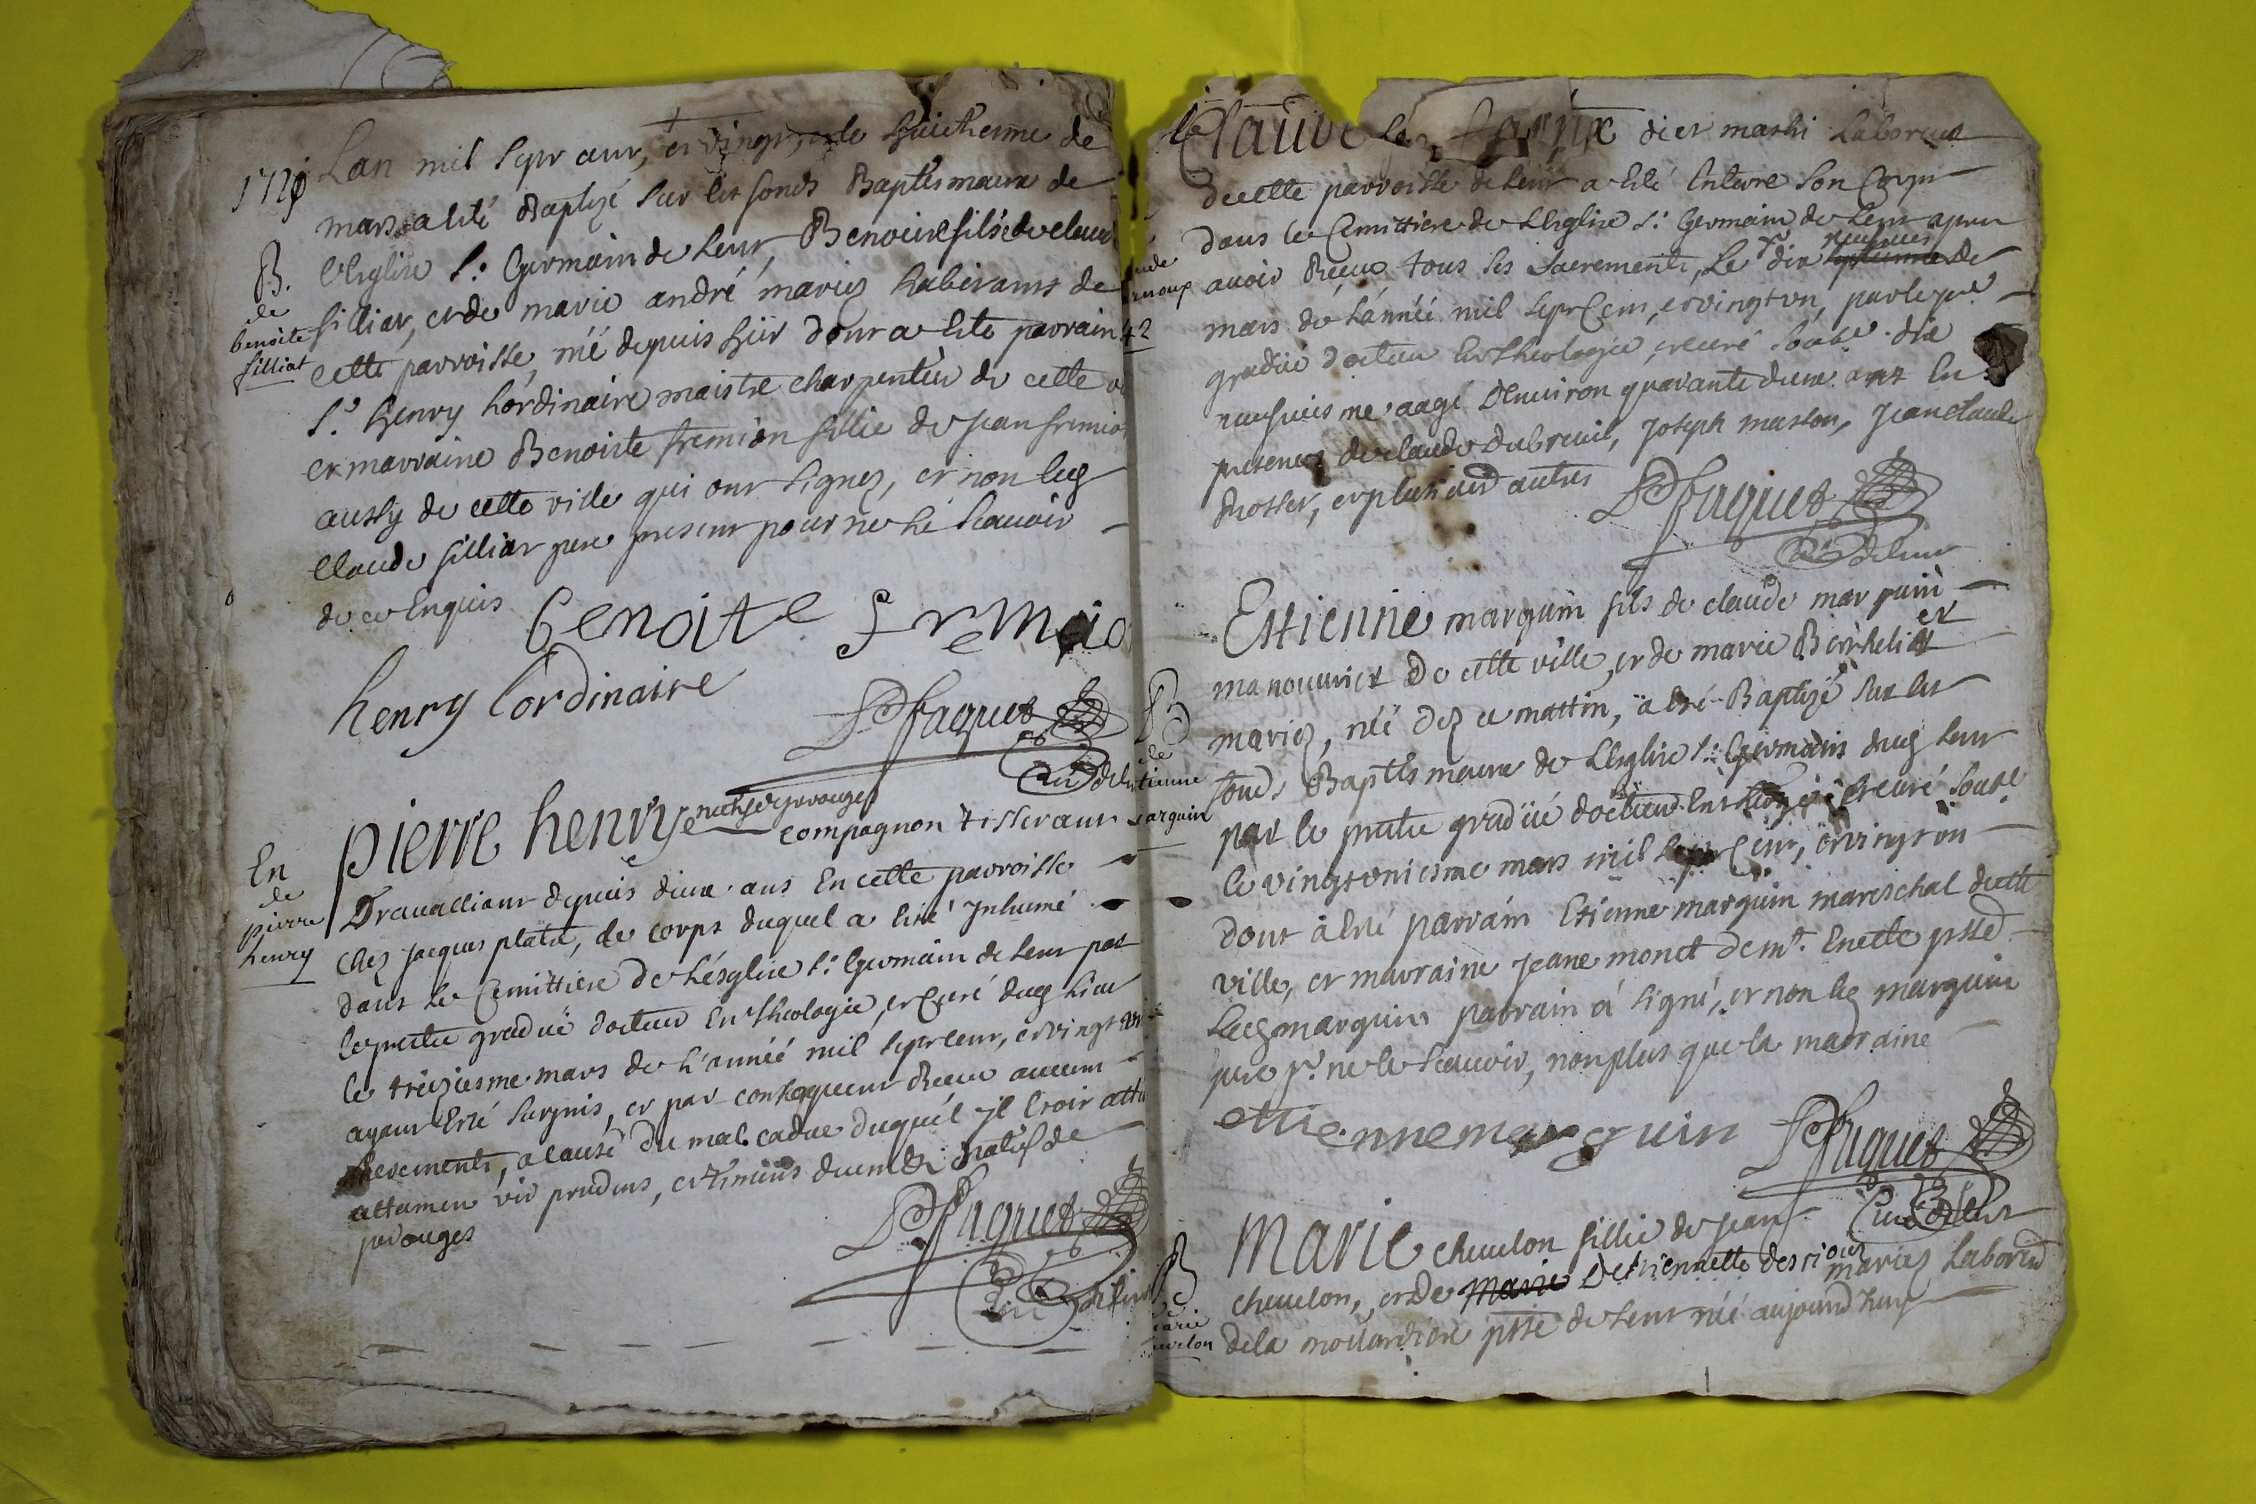 1721
Lan mil sept cent, et vingt, le huictiesme de
mars a esté Baptizé sur les fonds Baptismaux de
l'Esglise St. Germain de leur, Benoite fille de claude
filliat, et de marie andré mariez habitants de
cette parroisse, née depuis hier dont a esté parrain
Sr. henry Lordinaire maistre charpentier de cette
et marraine Benoiste fremion fillie de jean fremion
aussy de cette ville qui ont signez, et non led
Claude filliat pere present pour ne le scauoir
de ce enquis
B.
de
benoite
filliat
benoite
henry lordinaire
Faguet
pierre henry natif de perouges
compagnon tisserant
Trauailliant depuis deux ans en cette parroisse
chez jacques platet, le corps duquel a esté Inhumé
dans le Cemittiere de l'ésglise St. Germain de leur par
le prestre gradué docteur en theologie, et Curé dud lieu
le treiziesme mars de l'année mil sept cent, et vingt un
ayant esté surpris, et par consequent Receu aucun
sacrements, a cause du mal caduc duquel jl estoit
attamen vir prudens, et timens deum natif de
perouges
En
de
pierre
henry
Faguet
Claude
dit mathi Laboreur
de cette parroisse de leur a esté enterré son Corps
dans le Cemittiere de l'Esglise St. Germain de leur apres
auoir Receu tous ses sacrements, le dix neufuies de
mars de l'année mil sept Cent, et vingt un, par le pre
gradué docteur en theologie, et curé soubné dix
neufuiesme aagé d'enuiron quarante deux ans en
presence de claude dubreuil, joseph maston, jean claude
mottet, et plusieurs autres
42
Faguet
Curé de leur
Estienne marguin fils de claude marguin
manouurier de cette ville, et de marie Berthelier
mariez, né dez ce mattin, a esté Baptizé sur les
fonds Baptismaux de l'Esglise St. Germain dud leur
par le prestre gradüé docteur en et curé soubné
le vingt uniesme mars mil sept Cent, et vingt un
dont à esté parrain Etienne marguin mareschal de cette
ville, et marraine jeane monet demt. en cette psse
Led marguin parrain à signé, et non led marguin
pere pr. ne le scauoir, non plus que la marraine
B
de
etienne
marguin
ettiennemarguin
Faguet
Curé de leur
Marie cheuelon fillie de jean
cheuelon, et de Estiennette desrious mariez Laboreur
de la psse de leur née aujourdhuy
B
de
marie
cheuelon